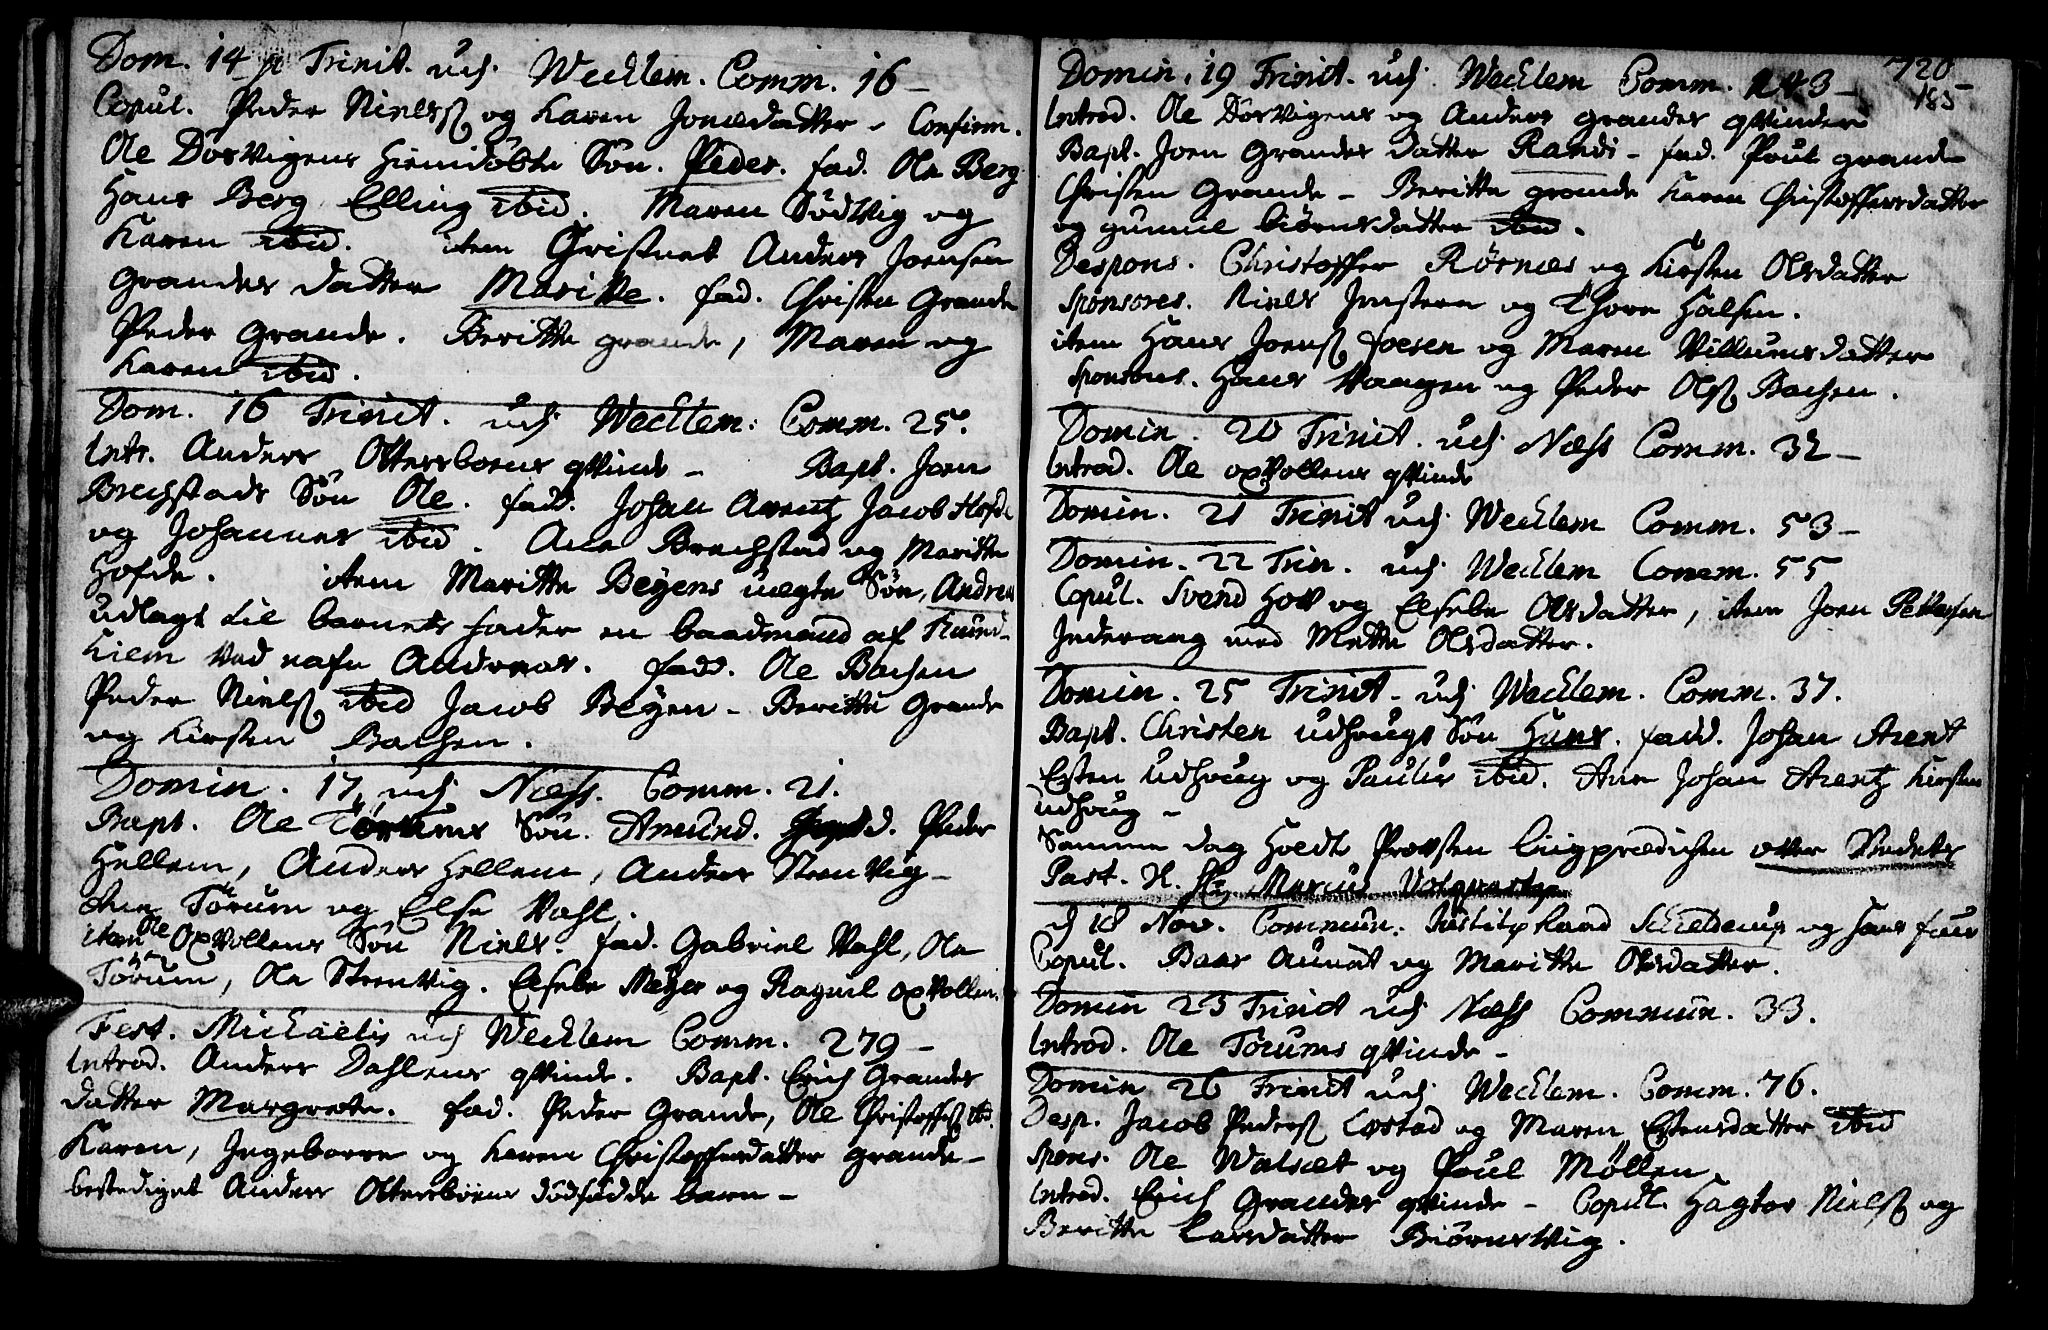 Dom. 14 p Trinit. udj Wechlem. Comm. 16 –
Copul. Peder Nielsß og Karen Jonædatter – Confirm.
Ole Dorvigens hiemdöbte Sön. Peder. fad. Ole Berg
Hans Berg Elling ibid. Maren Sødvig og
Karen ibid. item Christnet Anders Joensen
Grandes datter Maritte. fad. Christen Grande
Peder Grande. Beritte grande, Maren og
Karen ibid.
Dom. 16 Trinit. udj Wechlem: Comm. 25.
Intr. Anders Ottersboens qvinde – Bapt. Joen
Brechstads Sön Ole. fadd. Johan Arentz Jacob Hofde
og Johannes ibid. Ane Brechstad og Maritte
Hofde. item Maritte Beyens uægte Sön, Andreas
udlagt til barnets fader en baadmand af Trund-
hiem ved nafn Andreas. fadd. Ole Bachen
Peder Nielsß ibid Jacob Beyen – Beritte Grande
og Kirsten Bachen.
Domin. 17 udj Næss. Comm. 21.
Bapt. Ole Törums Sön. Amund. fad. Peder
Hellem, Anders Hellem, Anders Steenvig –
Ane Törum og Else Vahl.
item Ole Opvollens Sön Niels. fad. Gabriel Vahl, Ole
Törum, Ole Steenvig. Elsebe Meyer og Ragnil opvollen
Fest. Michaelis udj Wechlem Comm. 279 –
Introd. Anders Dahlens qvinde. Bapt. Erich Grandes
datter Margrete. fad. Peder Grande, Ole Christophß ibd.
Karen, Ingeborre og Karen Christophersdatter grande –
bestediget Anders Ottersboens dödfödde barn –
720
185
Domin. 19 Trinit. udj Wechlem Comm. 243 –
Introd. Ole Dorvigens og Anders grandes qvinder
Bapt. Joen Grandes datter Randi – fad. Poul grande
Christen Grande – Beritte grande Karen Christoffersdatter
og gunnil biörnsdatter ibid.
Despons. Christoffer Rörnes og Kirsten Olsdatter
Sponsores. Niels Jmstern og Thore Halsen.
item Hans Joensß foesen og Maren Villumsdatter
Sponsores. Hans Vaagen og Peder Olsß Bachen.
Domin. 20 Trinit. udj Næss Comm. 32 –
Introd. Ole opvollens qvinde
Domin. 21 Trinit udj Wechlem Comm. 53 –
Domin. 22 Trin. udj Wechlem Comm. 55
Copul. Svend Hov og Elsebe Olsdatter, item Joen Pettersen
Jederaag med Mette Olsdatter.
Domin. 25 Trinit – udj Wechlem. Comm. 37.
Bapt. Christen udhougs Sön Hans. fadd. Johan Arent
Esten Udhoug og Paulus ibid. Ane Johan Arentz Kirsten
udhoug –
Samme dag holdt Provsten liigprædichen over Stedets
Past. H. Hr Marcus
d 18 Nov. Commun. Schielderup og hans frue
Copul. Baar Aunæt og Maritte Olsdatter.
Domin 23 Trinit udj Næss Commun. 33.
Introd. Ole Torums qvinde –
Domin 26 Trinit udj Wechlem. Comm. 76.
Desp. Jacob Pedersß Copstad og Maren Estensdatter ibid
Spons. Ole Walsæt og Poul Möllen
Introd. Erich Grandes qvinde – Copul. Hagtor Nielsß og
Beritte Larsdatter Biörnevig.